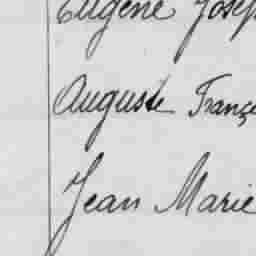 Eugène Josep
Auguste Franç
Jean Marie